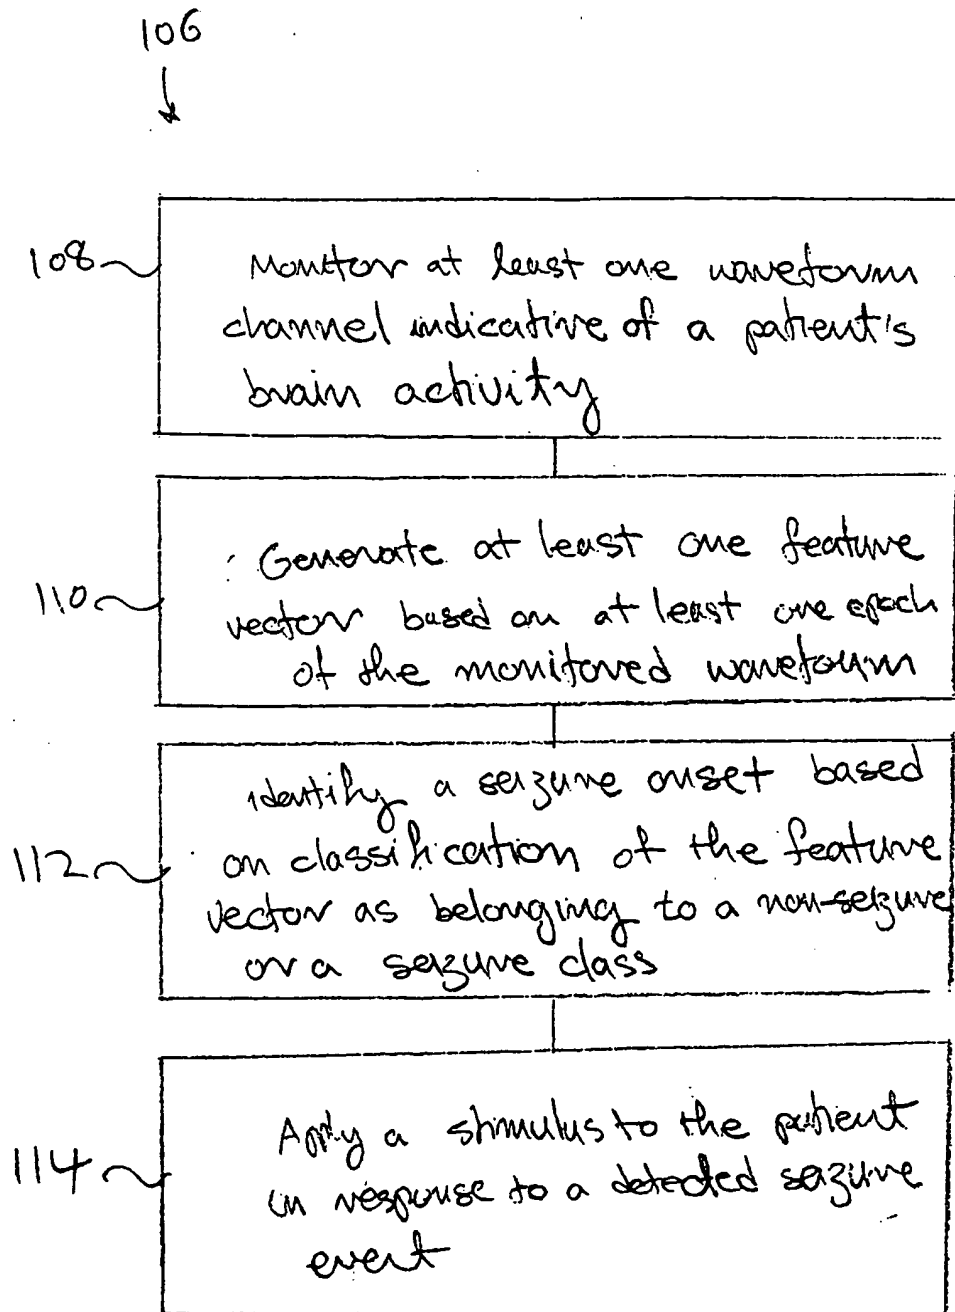 106
108
Monitor at least one waveform
channel indicative of a patient's
brain activity
110
Generate at least one feature
vector based on at least one epoch
of the monitored waveform
112
identify a seizure onset based
on classification of the feature
vector as belonging to a non-seizure
or a seizure class
114
Apply a stimulus to the patient
in response to a detected seizure
event